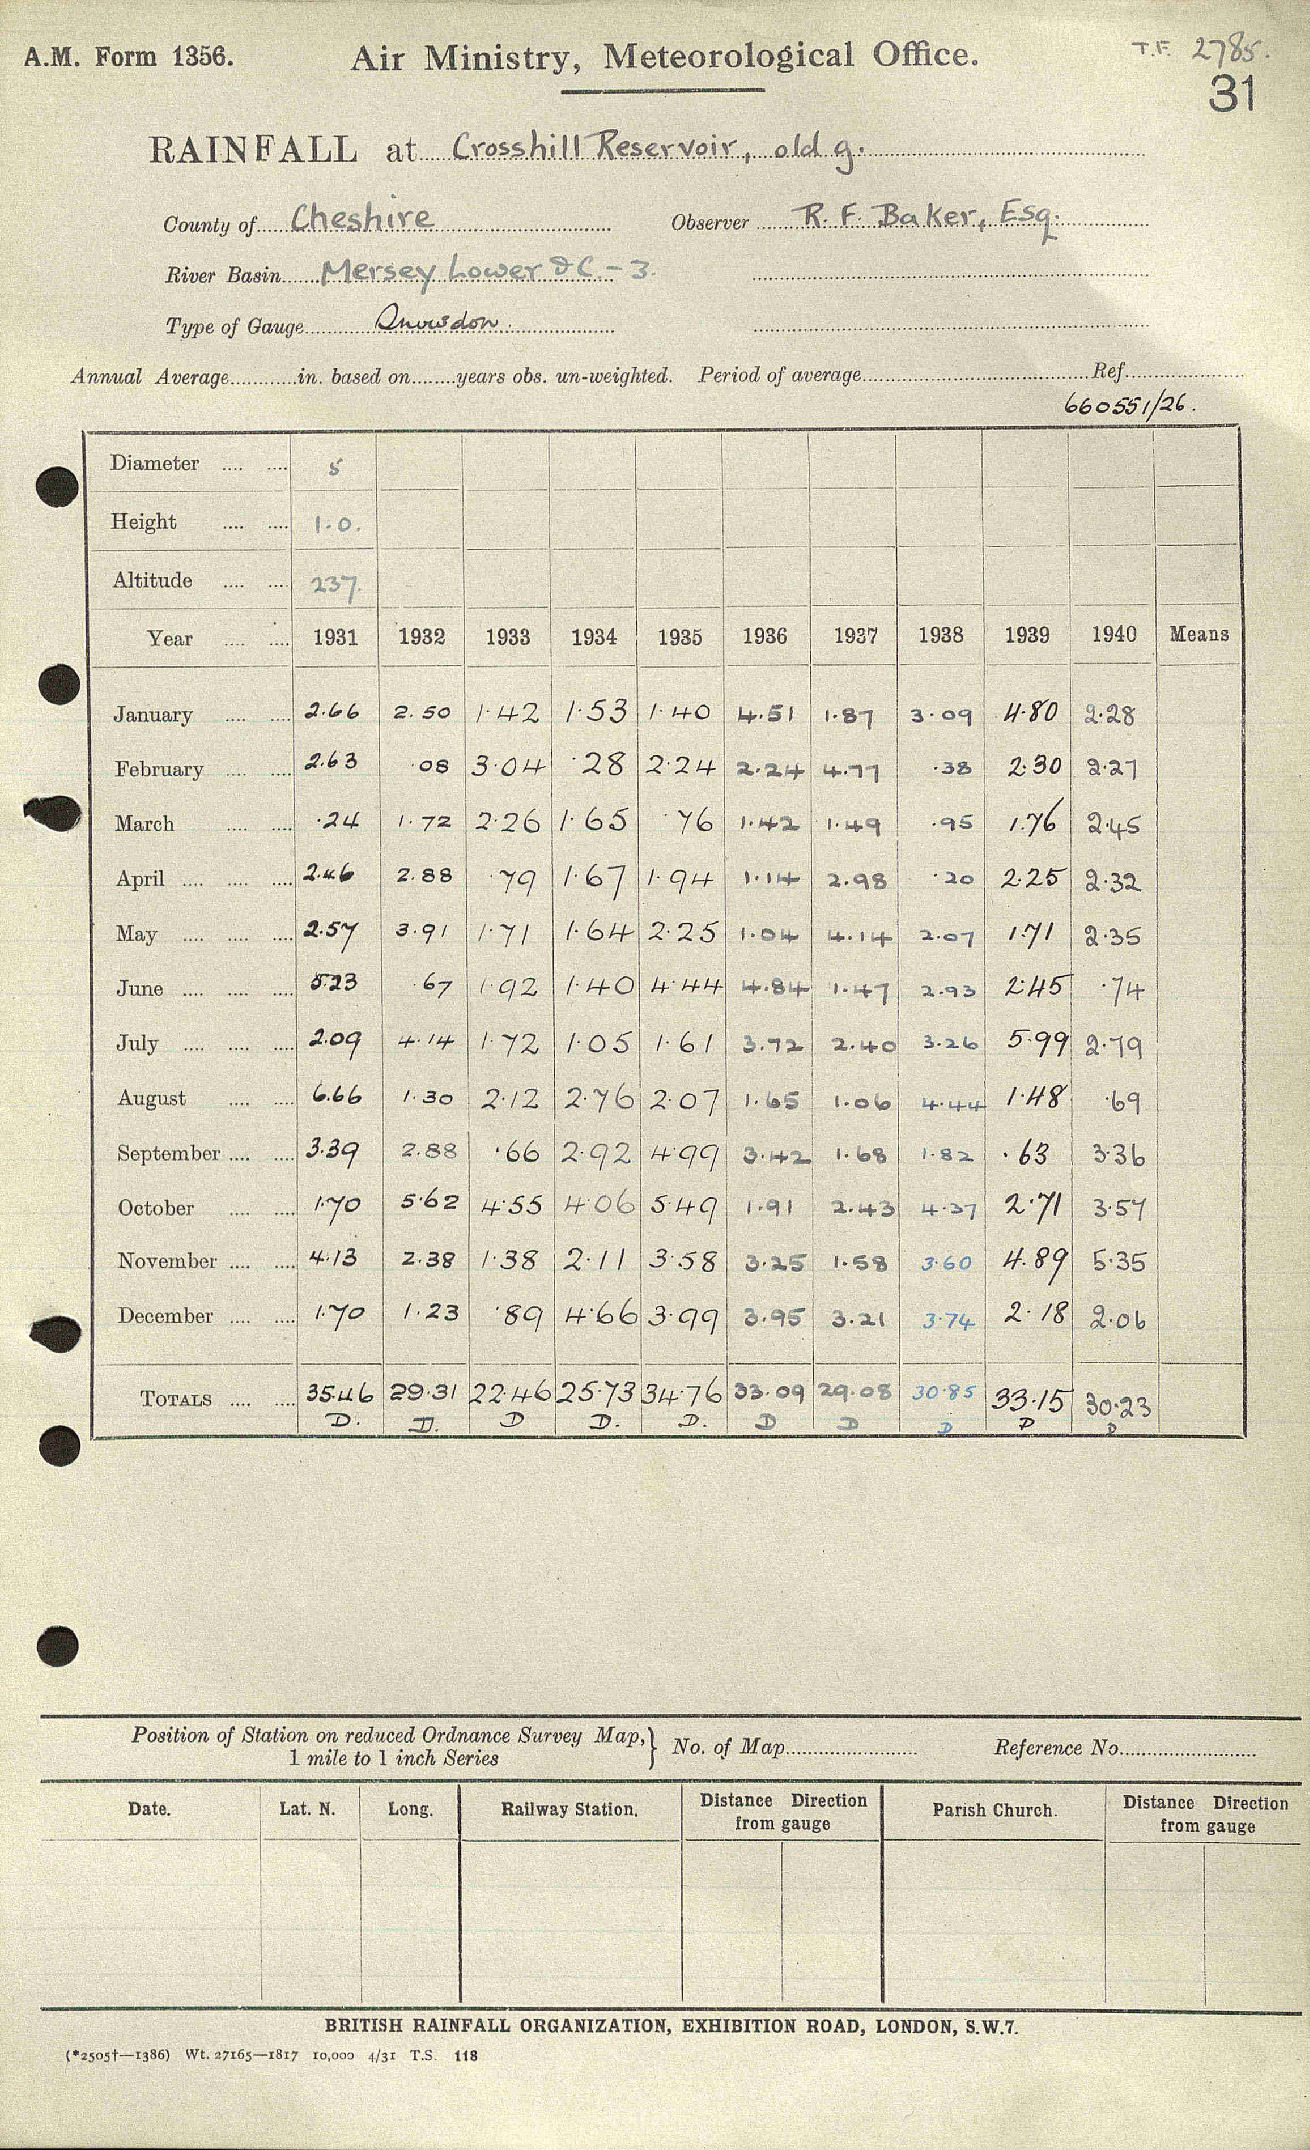 A.M. Form 1356. Air Ministry, Meteorological Office. T.F. 2785.
31
RAINFALL at Crosshill Reservoir, old g.
County of Cheshire Observer R. F. Baker, Esq.
River Basin Mersey Lower &C. - 3.
Type of Gauge Snowdon.
Annual Average in. based on years obs. un-weighted. Period of average Ref.
660551/26.
Diameter 5
Height 1.0.
Altitude 237.
Year 1931 1932 1933 1934 1935 1936 1937 1938 1939 1940 Means
January 2.66 2.50 1.42 1.53 1.40 4.51 1.87 3.09 4.80 2.28
February 2.63 .08 3.04 .28 2.24 2.24 4.77 .38 2.30 2.27
March .24 1.72 2.26 1.65 .76 1.42 1.49 .95 1.76 2.45
April 2.46 2.88 .79 1.67 1.94 1.14 2.98 .20 2.25 2.32
May 2.57 3.91 1.71 1.64 2.25 1.04 4.14 2.07 1.71 2.35
June 5.23 .67 1.92 1.40 4.44 4.84 1.47 2.93 2.45 .74
July 2.09 4.14 1.72 1.05 1.61 3.72 2.40 3.26 5.99 2.79
August 6.66 1.30 2.12 2.76 2.07 1.65 1.06 4.44 1.48 .69
September 3.39 2.88 .66 2.92 4.99 3.42 1.68 1.82 .63 3.36
October 1.70 5.62 4.55 4.06 5.49 1.91 2.43 4.37 2.71 3.57
November 4.13 2.38 1.38 2.11 3.58 3.25 1.58 3.60 4.89 5.35
December 1.70 1.23 .89 4.66 3.99 3.95 3.21 3.74 2.18 2.06
TOTALS 35.46 29.31 22.46 25.73 34.76 33.09 29.08 30.85 33.15 30.23
D. D. D D. D. D D D D D
Position of Station on reduced Ordnance Survey Map, } No. of Map Reference No.
1 mile to 1 inch Series
Date. Lat. N. Long. Railway Station. Distance Direction Parish Church. Distance Direction
from gauge from gauge
BRITISH RAINFALL ORGANIZATION, EXHIBITION ROAD, LONDON, S.W.7.
(*2505†—1386) Wt. 27165—1817 10,000 4/31 T.S. 118